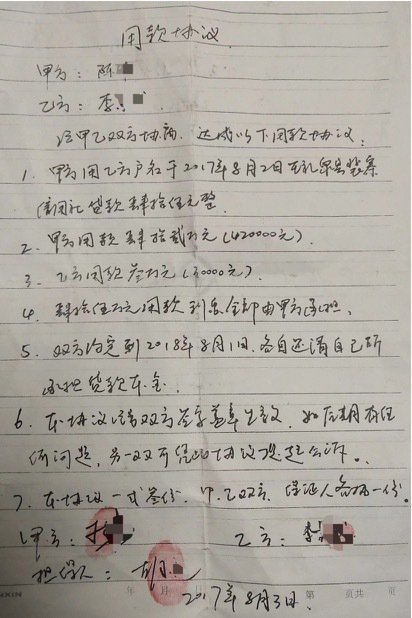 用款协议
甲方：陈
乙方：李
经甲乙双方协商，达成以下用款协议：
1、甲方用乙方户名于2017年8月2日在礼泉县
信用社贷款肆拾伍万元整
2、甲方用款肆拾贰万元（420000元）。
3、乙方用款叁万元（30000元）
4、肆拾伍万元用款利息全部由甲方承担。
5、双方约定到2018年8月1日，各自还清自己所
承担贷款本金。
6、本协议经双方签字盖章生效，如后期有任
何问题，另一双可凭此协议提起公诉。
7、本协议一式叁份，甲、乙双方、保证人各两一份。
甲方：
乙方：李
担保人：
年 月 第 页 共 页
2017年8月3日.